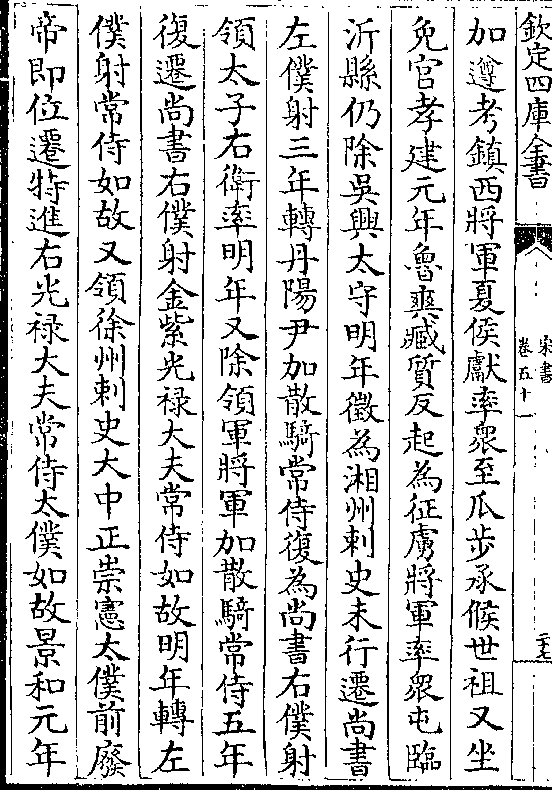 欽定四庫全書
宋書
卷五十一
二十七
加遵考鎮西將軍夏侯獻率衆至瓜步承候世祖又坐
免官孝建元年魯爽臧質反起為征虜將軍率衆屯臨
沂縣仍除吳興太守明年徵為湘州刺史未行遷尚書
左僕射三年轉丹陽尹加散騎常侍復為尚書右僕射
領太子右衛率明年又除領軍將軍加散騎常侍五年
復遷尚書右僕射金紫光祿大夫常侍如故明年轉左
僕射常侍如故又領徐州刺史大中正崇憲太僕前廢
帝即位遷特進右光祿大夫常侍太僕如故景和元年